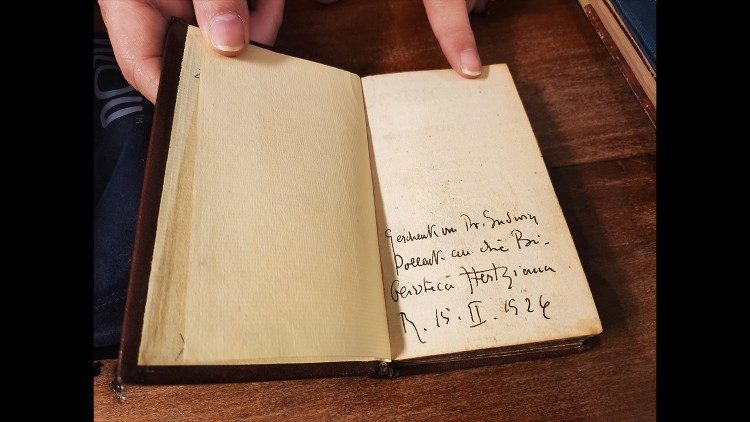 Geschenk von Dr. Ludwig
Pollak an die Bi-
blioteca Hertziana
R. 15. II. 1924